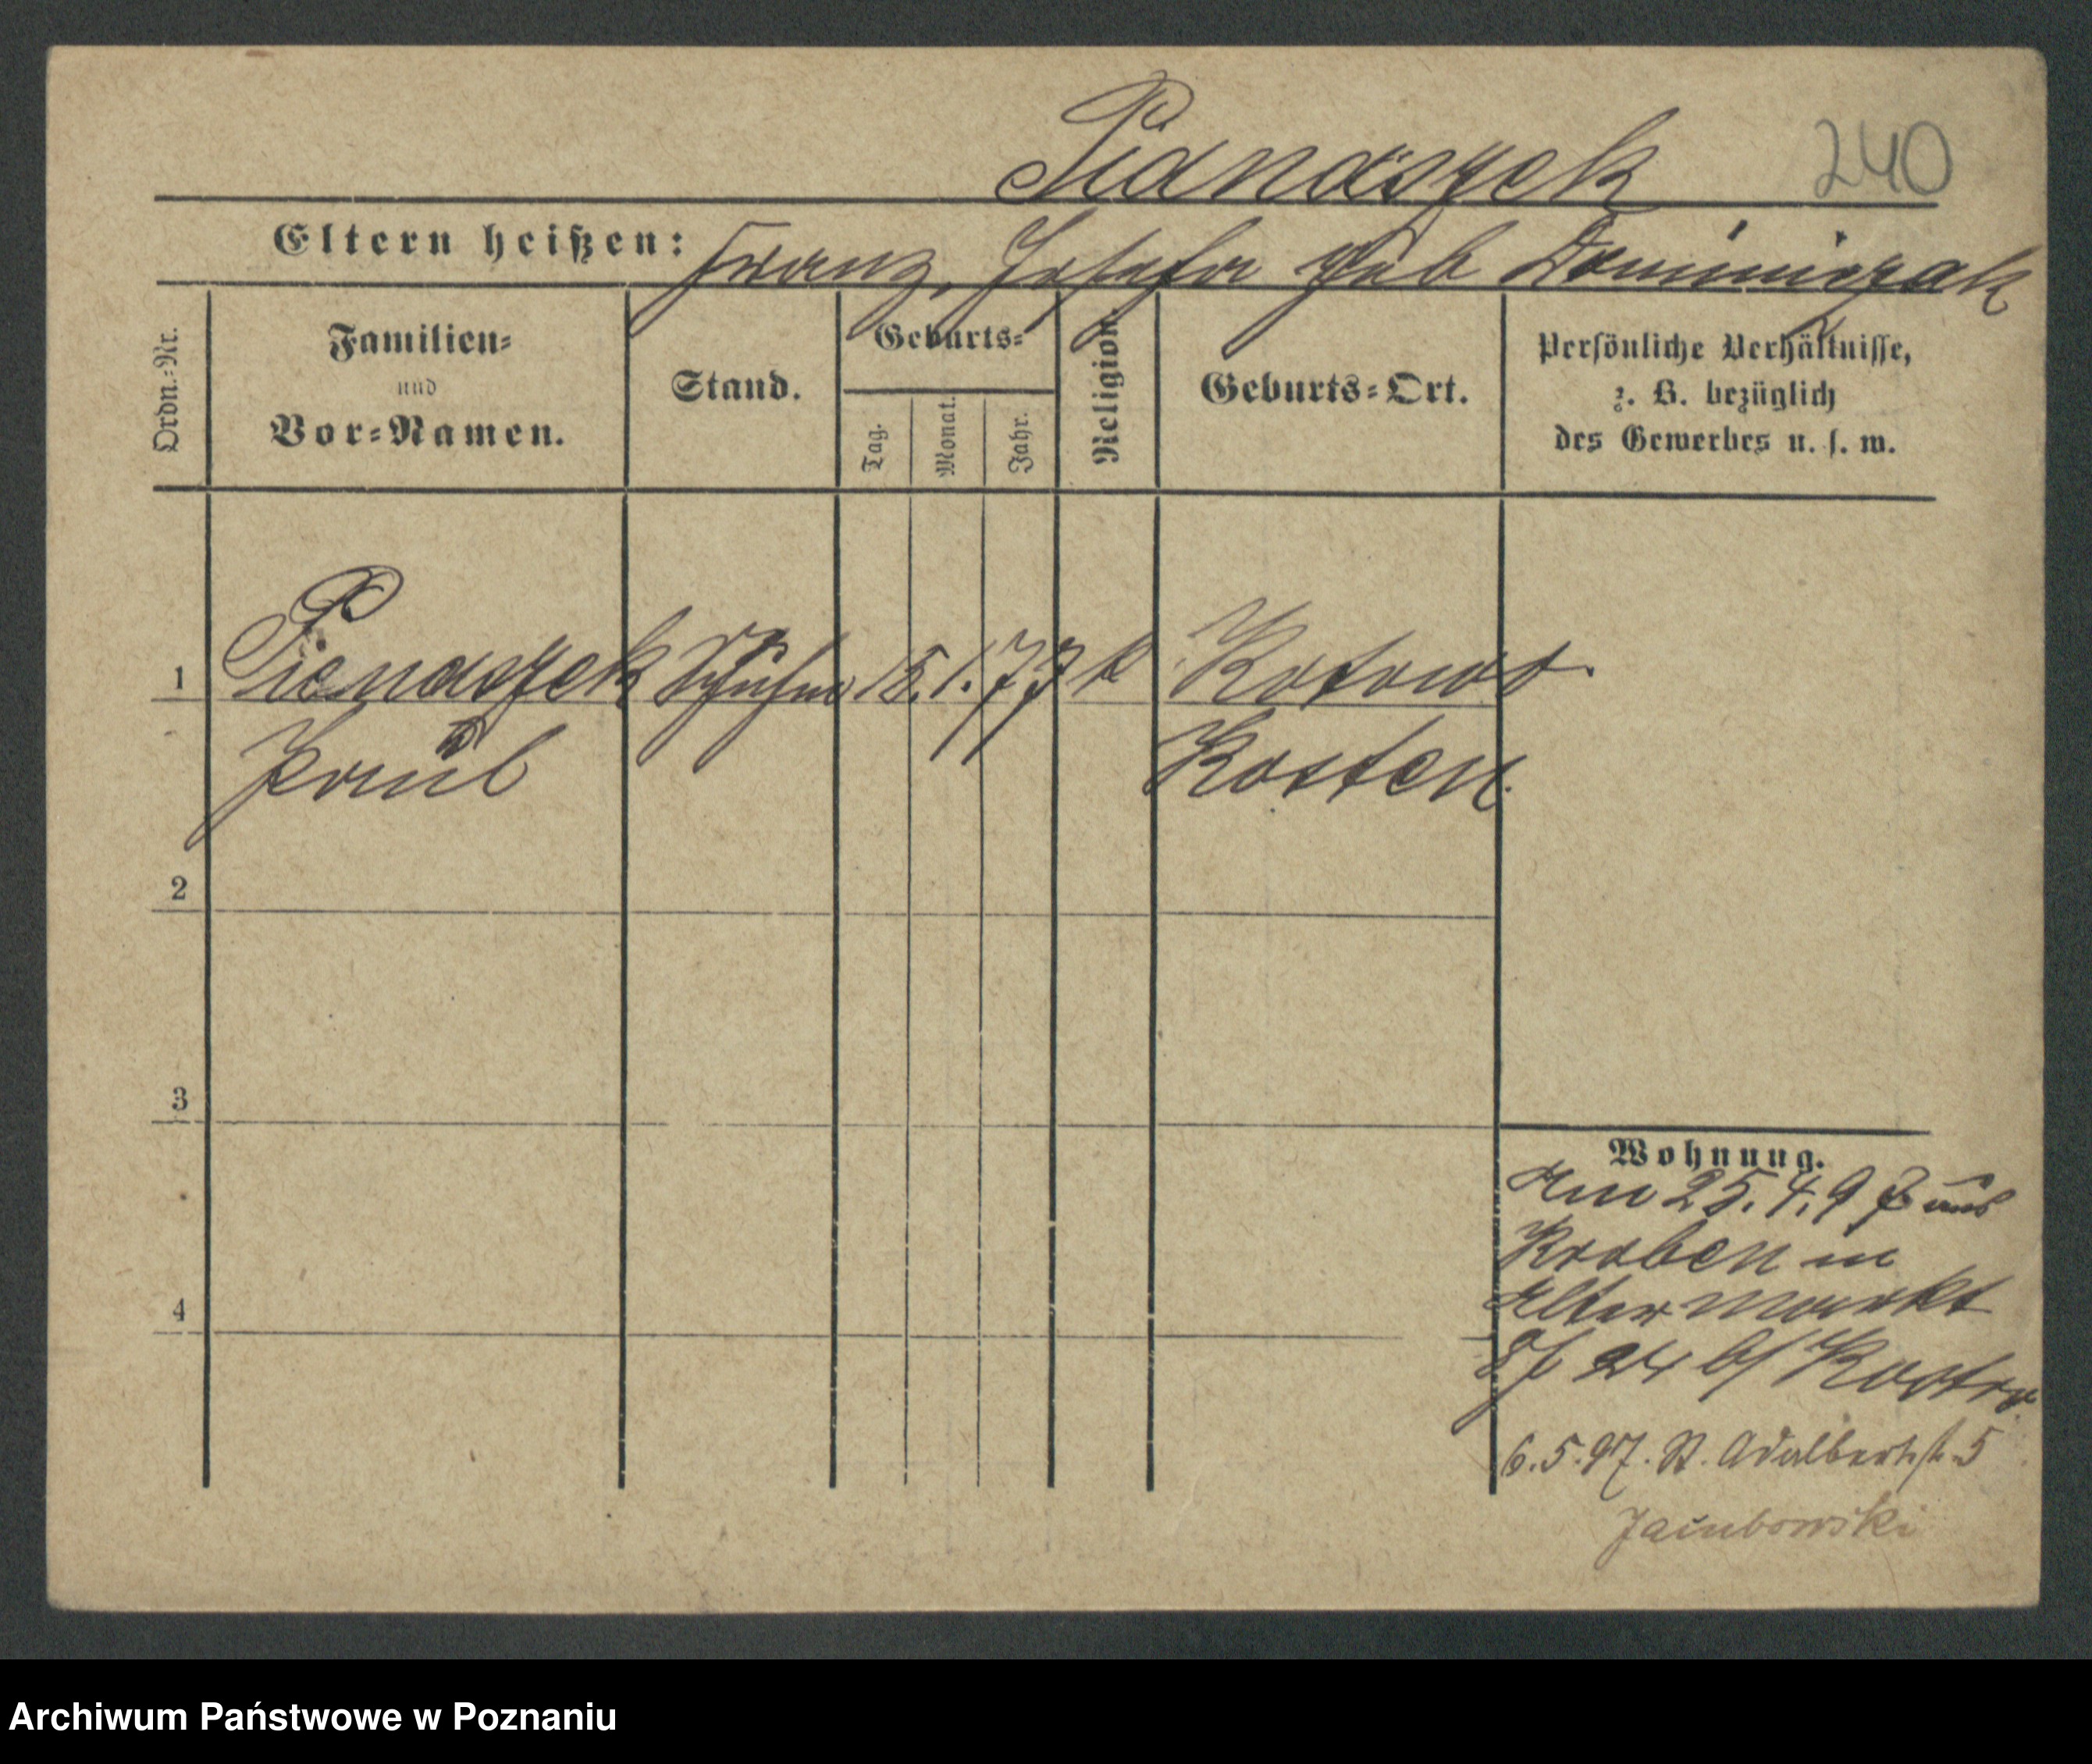 Piendaszek 240
Eltern heißen: Franz, Josefa geb Dominiczak
Ordn.-Nr.
Familien-
und
Vor-Namen.
Stand.
Geburts-
Tag.
Monat.
Jahr.
Religion.
Geburts-Ort.
Persönliche Verhältnisse,
z. B. bezüglich
des Gewerbes u. s. w.
1 Piendaszek 15. 1. 77 k
Paul Kosten.
2
3
4
Wohnung.
Am 25.4.97 aus
Kroben in
Alter Markt
24 b/
6.5.97. St. Adalbertstr. 5
Jacubowski
Archiwum Państwowe w Poznaniu